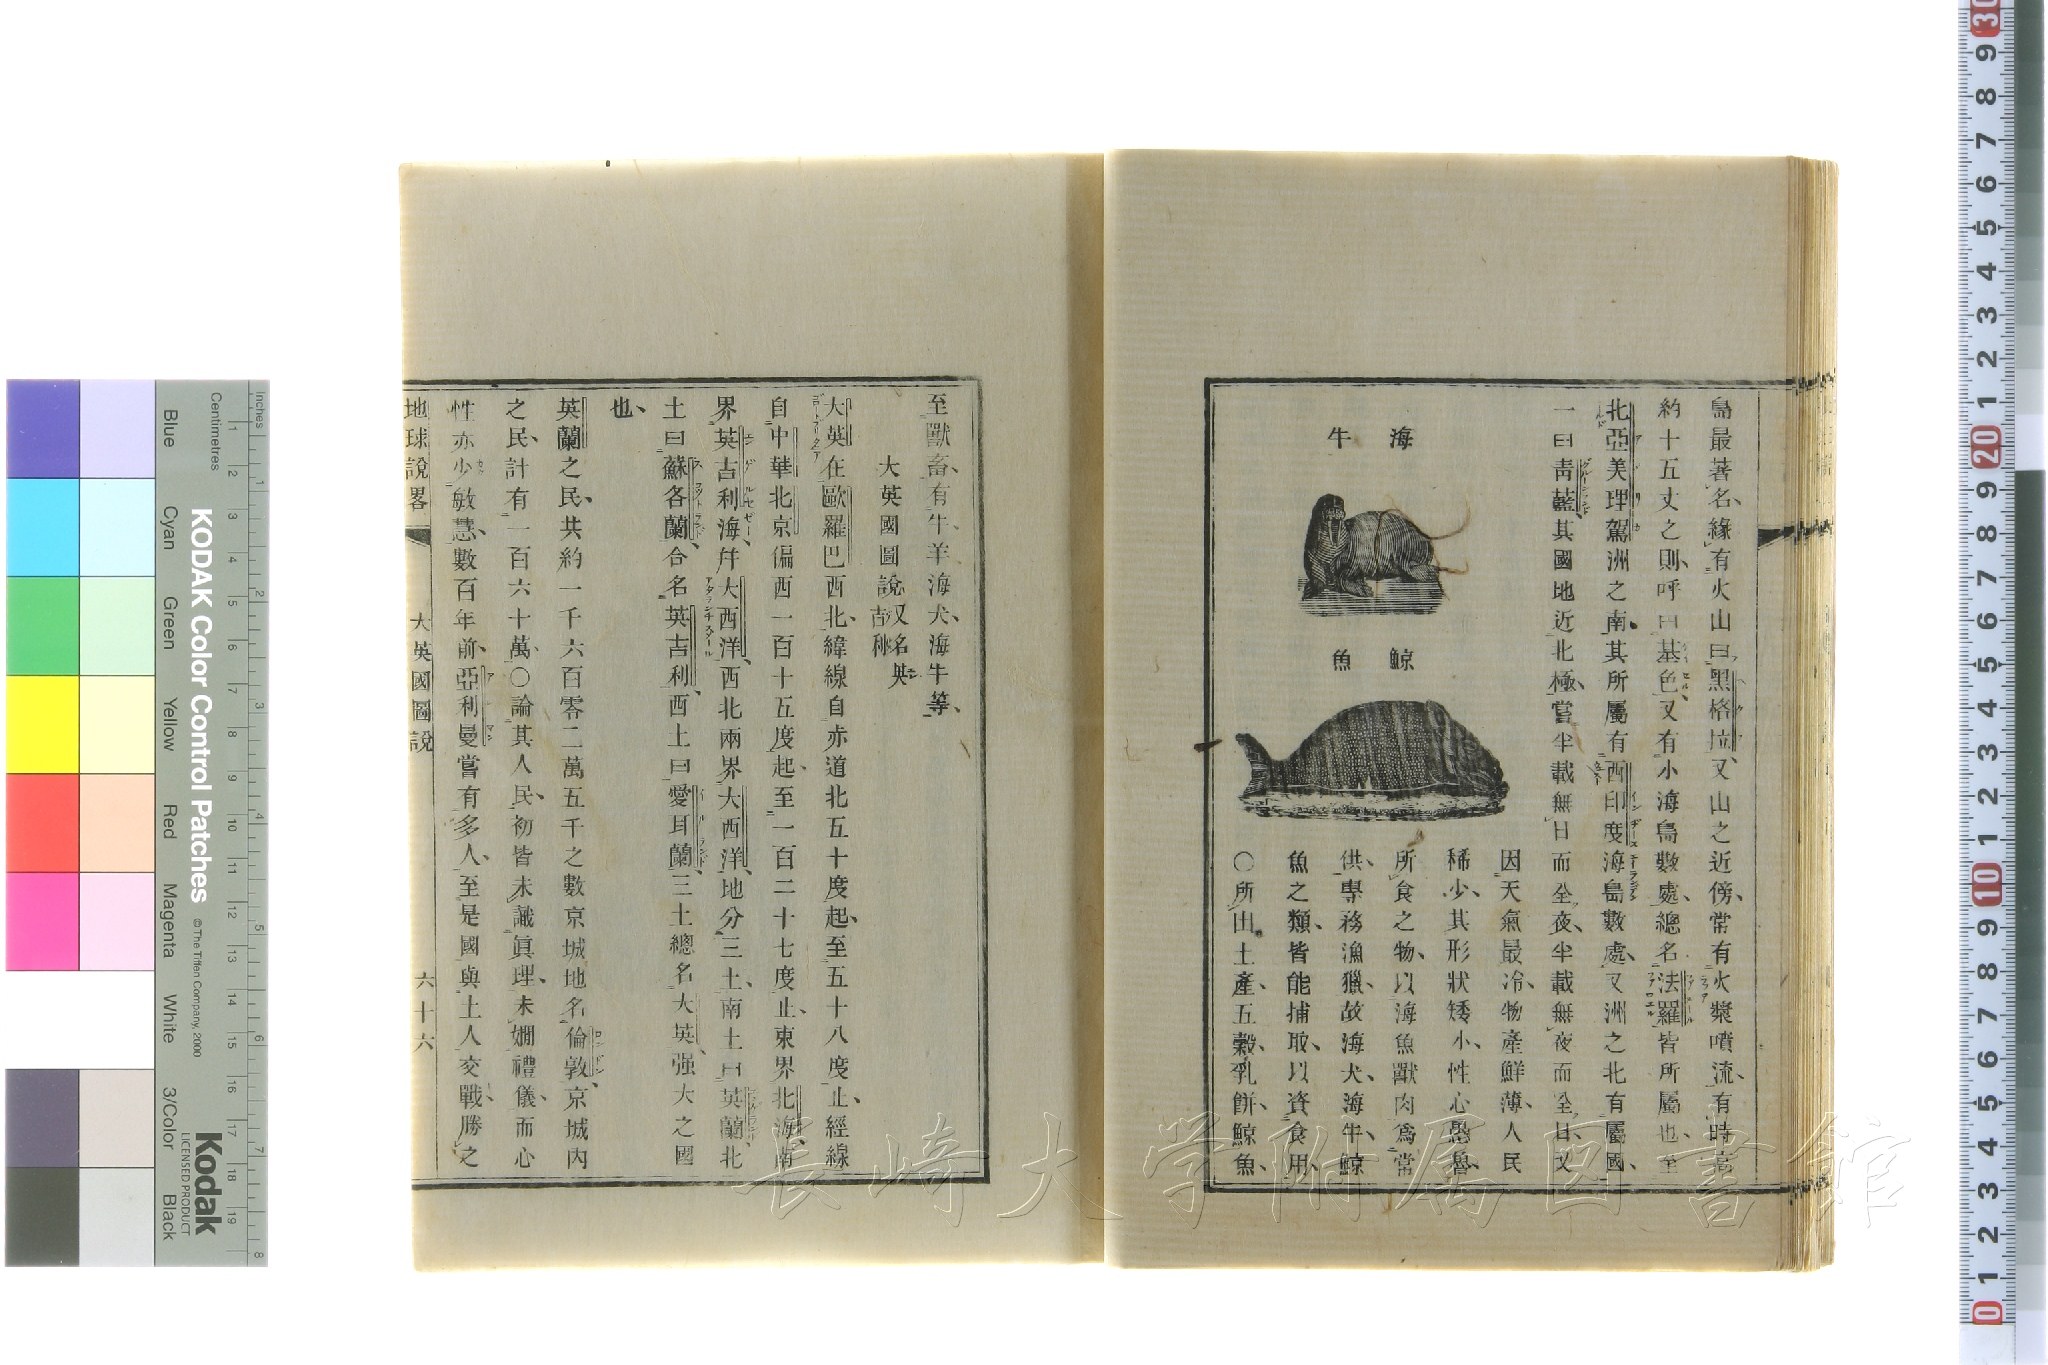 島最著名緣有火山曰黑格拉又山之近傍常有火漿噴流有時高
約十五丈之則呼曰基色又有小海島數處總名法羅皆所屬也至
北亞美理駕洲之南其所屬有西印度海島數處又洲之北有屬國
一曰靑藍其國地近北極嘗半載無日而全夜半載無夜而全日又
海牛
鯨魚
因天氣最冷物產鮮薄人民
稀少其形狀矮小性心愚魯
所食之物以海魚獸肉爲常
供專務漁獵故海犬海牛鯨
魚之類皆能捕取以資食用
○所出土產五穀乳餅鯨魚
至獸畜有牛羊海犬海牛等
大英國圖說又名英吉利
大英在歐羅巴西北緯線自赤道北五十度起至五十八度止經線
自中華北京偏西一百十五度起至一百二十七度止東界北海南
界英吉利海幷大西洋西北兩界大西洋地分三土南土曰英蘭北
土曰蘇各蘭合名英吉利西土曰愛耳蘭三土總名大英强大之國
也
英蘭之民共約一千六百零二萬五千之數京城地名倫敦京城內
之民計有一百六十萬○論其人民初皆未識眞理未嫺禮儀而心
性亦少敏慧數百年前亞利曼嘗有多人至是國與土人交戰勝之
地球說畧 大英國圖說 六十六
KODAK Color Control Patches
© The Tiffen Company, 2000
Kodak
LICENSED PRODUCT
Inches 1 2 3 4 5 6 7 8
Centimetres 1 2 3 4 5 6 7 8 9 10 11 12 13 14 15 16 17 18 19
Blue Cyan Green Yellow Red Magenta White 3/Color Black
30 9 8 7 6 5 4 3 2 1 20 9 8 7 6 5 4 3 2 1 10 9 8 7 6 5 4 3 2 1 0
長崎大学附属図書館